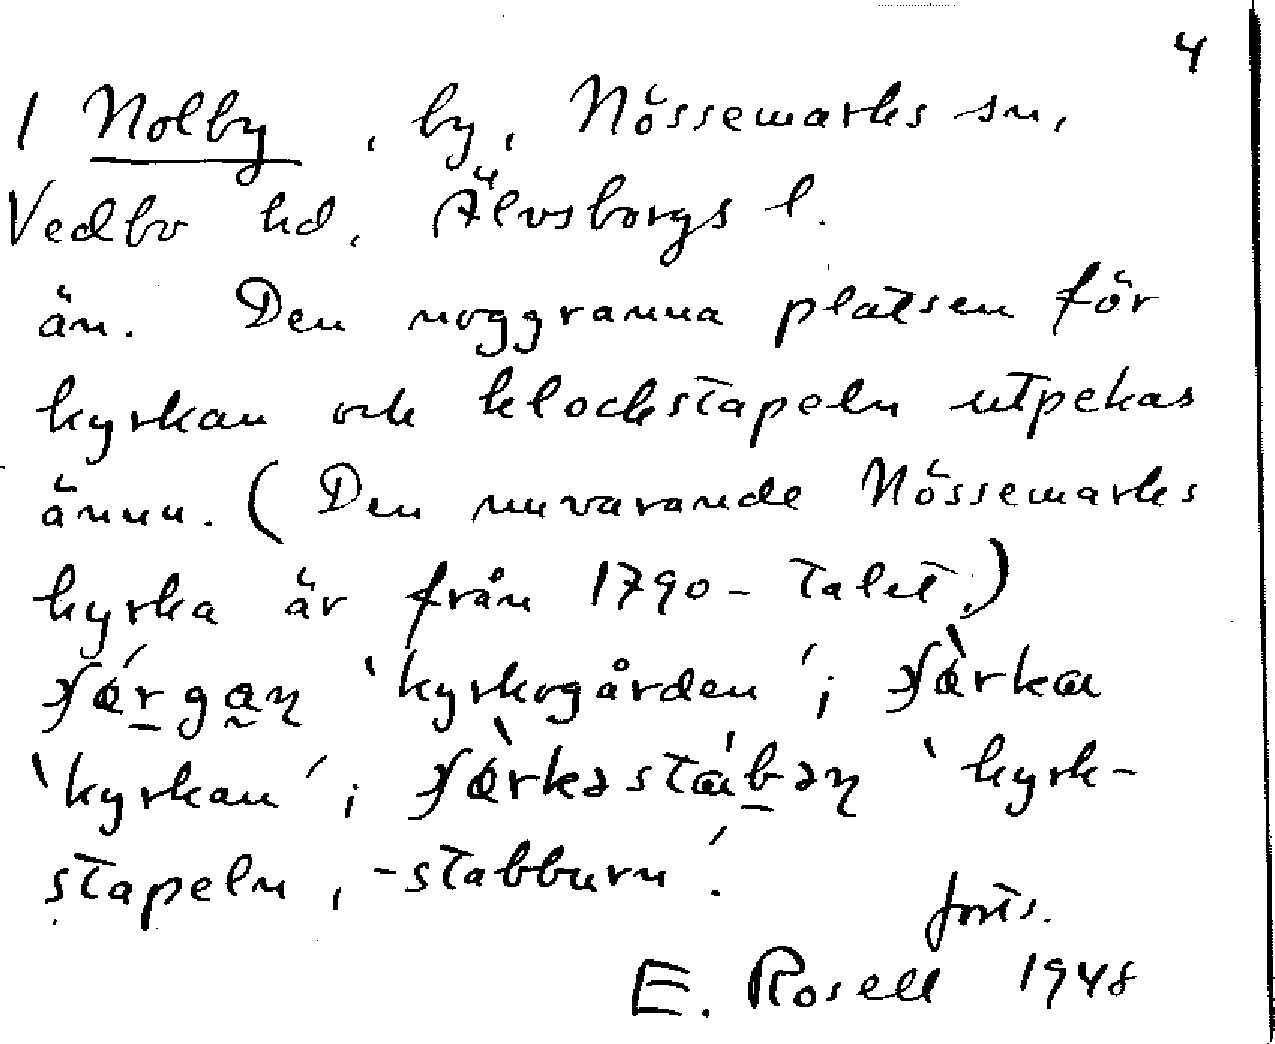 4
1 Nolby, by, Nössemarks sn,
Vedbo hd, Älvsborgs l.
än. Den noggranna platsen för
kyrkan och klockstapeln utpekas
ännu. (Den nuvarande Nössemarks
kyrka är från 1790-talet.)
'kyrkogården';
'kyrkan'; 'kyrk-
stapeln, -stabburn'.
forts.
E. Rosell 1948